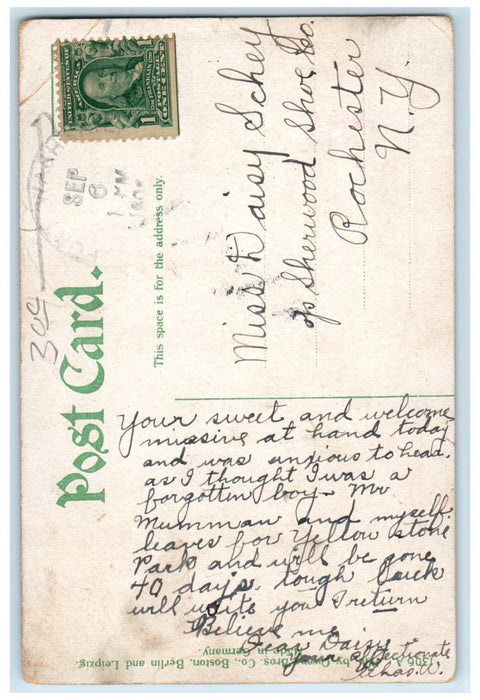 UNITED STATES OF AMERICA
ONE CENT
1
1
SEP
8
1 PM
30¢
Post Card.
This space is for the address only.
Miss Daisy Schey
c/o Sherwood Shoe Co.
Rochester
N. Y.
Your sweet and welcome
mussive at hand today
and was anxious to head.
as I thought I was a
forgotten boy. Mr
Mumman and myself.
leaves for Yellow stone
Park and will be gone
40 days. tough luck
will write you I return
Believe me
Dear Daisy
Your affectionate
Chas. W.
1306 A by Bros. Co., Boston, Berlin and Leipzig.
Made in Germany.